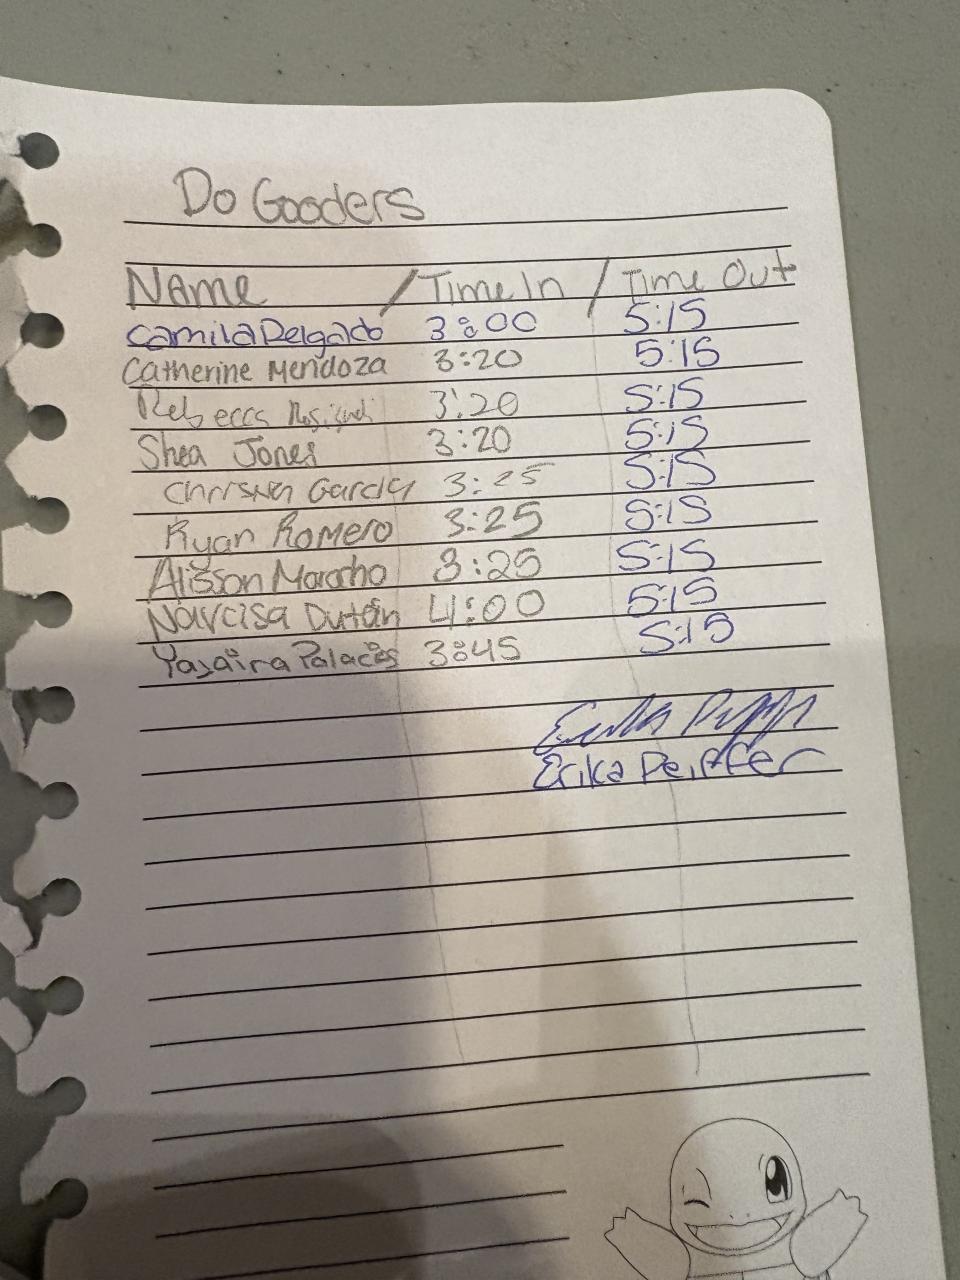 Do Gooders
Name / Time In / Time Out
Camila Delgado 3:00 5:15
Catherine Mendoza 3:20 5:15
Rebecca 3:20 5:15
Shea Jones 3:20 5:15
Garcia 3:25 5:15
Ryan Romero 3:25 5:15
Alisson Marocho 3:25 5:15
Narcisa Dután 4:00 5:15
Yajaira Palacios 3:45 5:15
Erika Peiffer